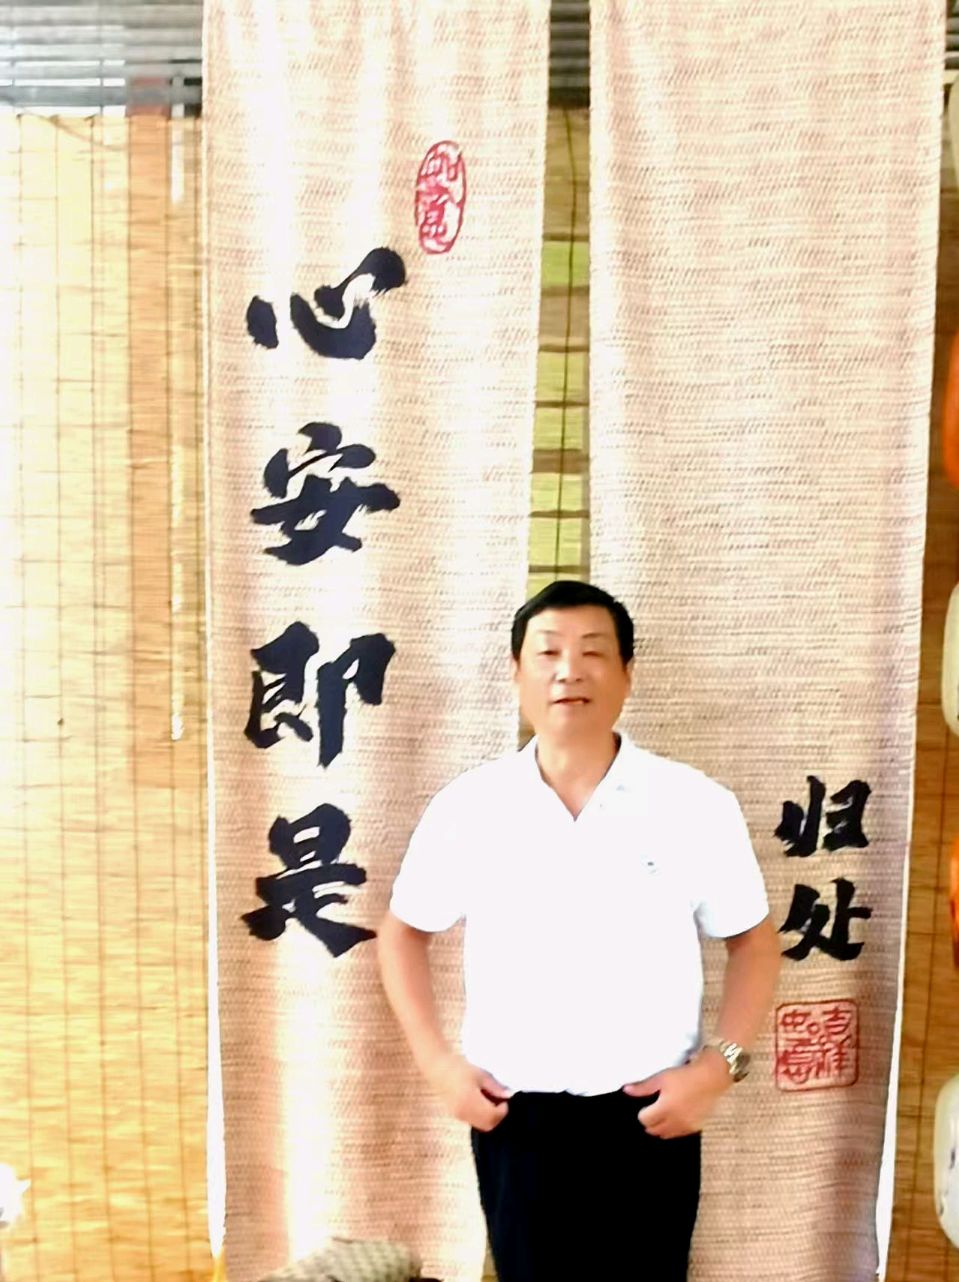 心安即是
归处
吉祥